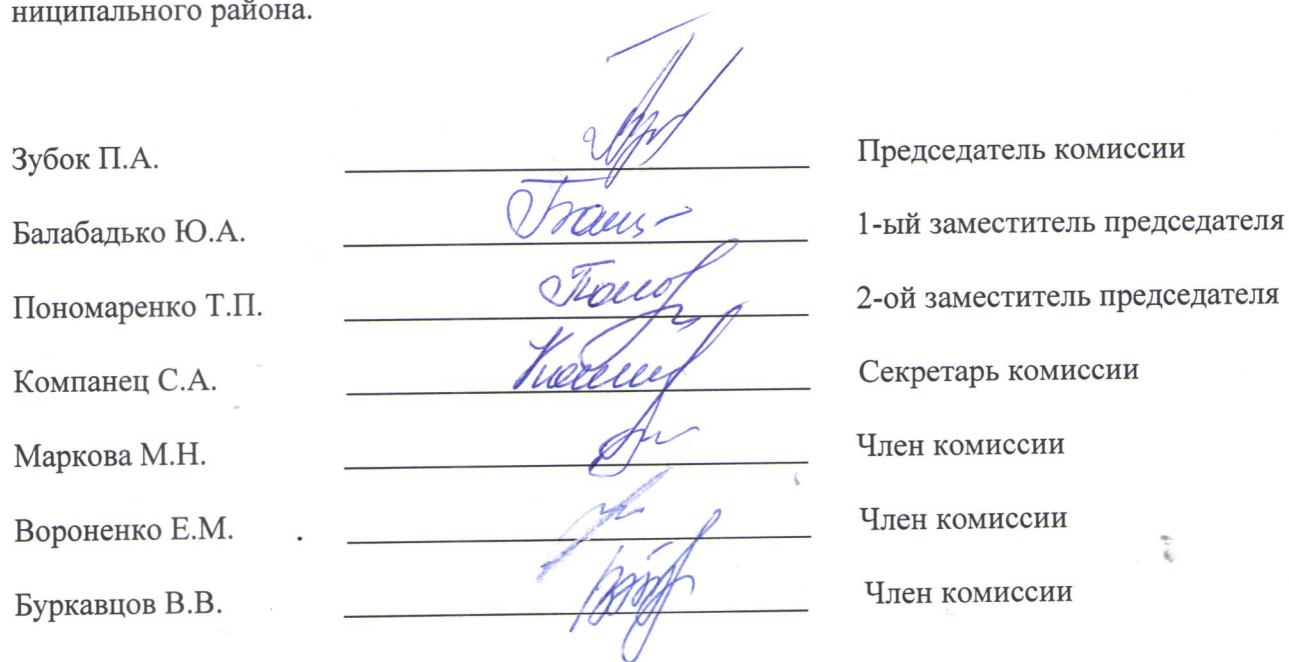 ниципального района.
Зубок П.А. Председатель комиссии
Балабадько Ю.А. 1-ый заместитель председателя
Пономаренко Т.П. 2-ой заместитель председателя
Компанец С.А. Секретарь комиссии
Маркова М.Н. Член комиссии
Вороненко Е.М. . Член комиссии
Буркавцов В.В. Член комиссии